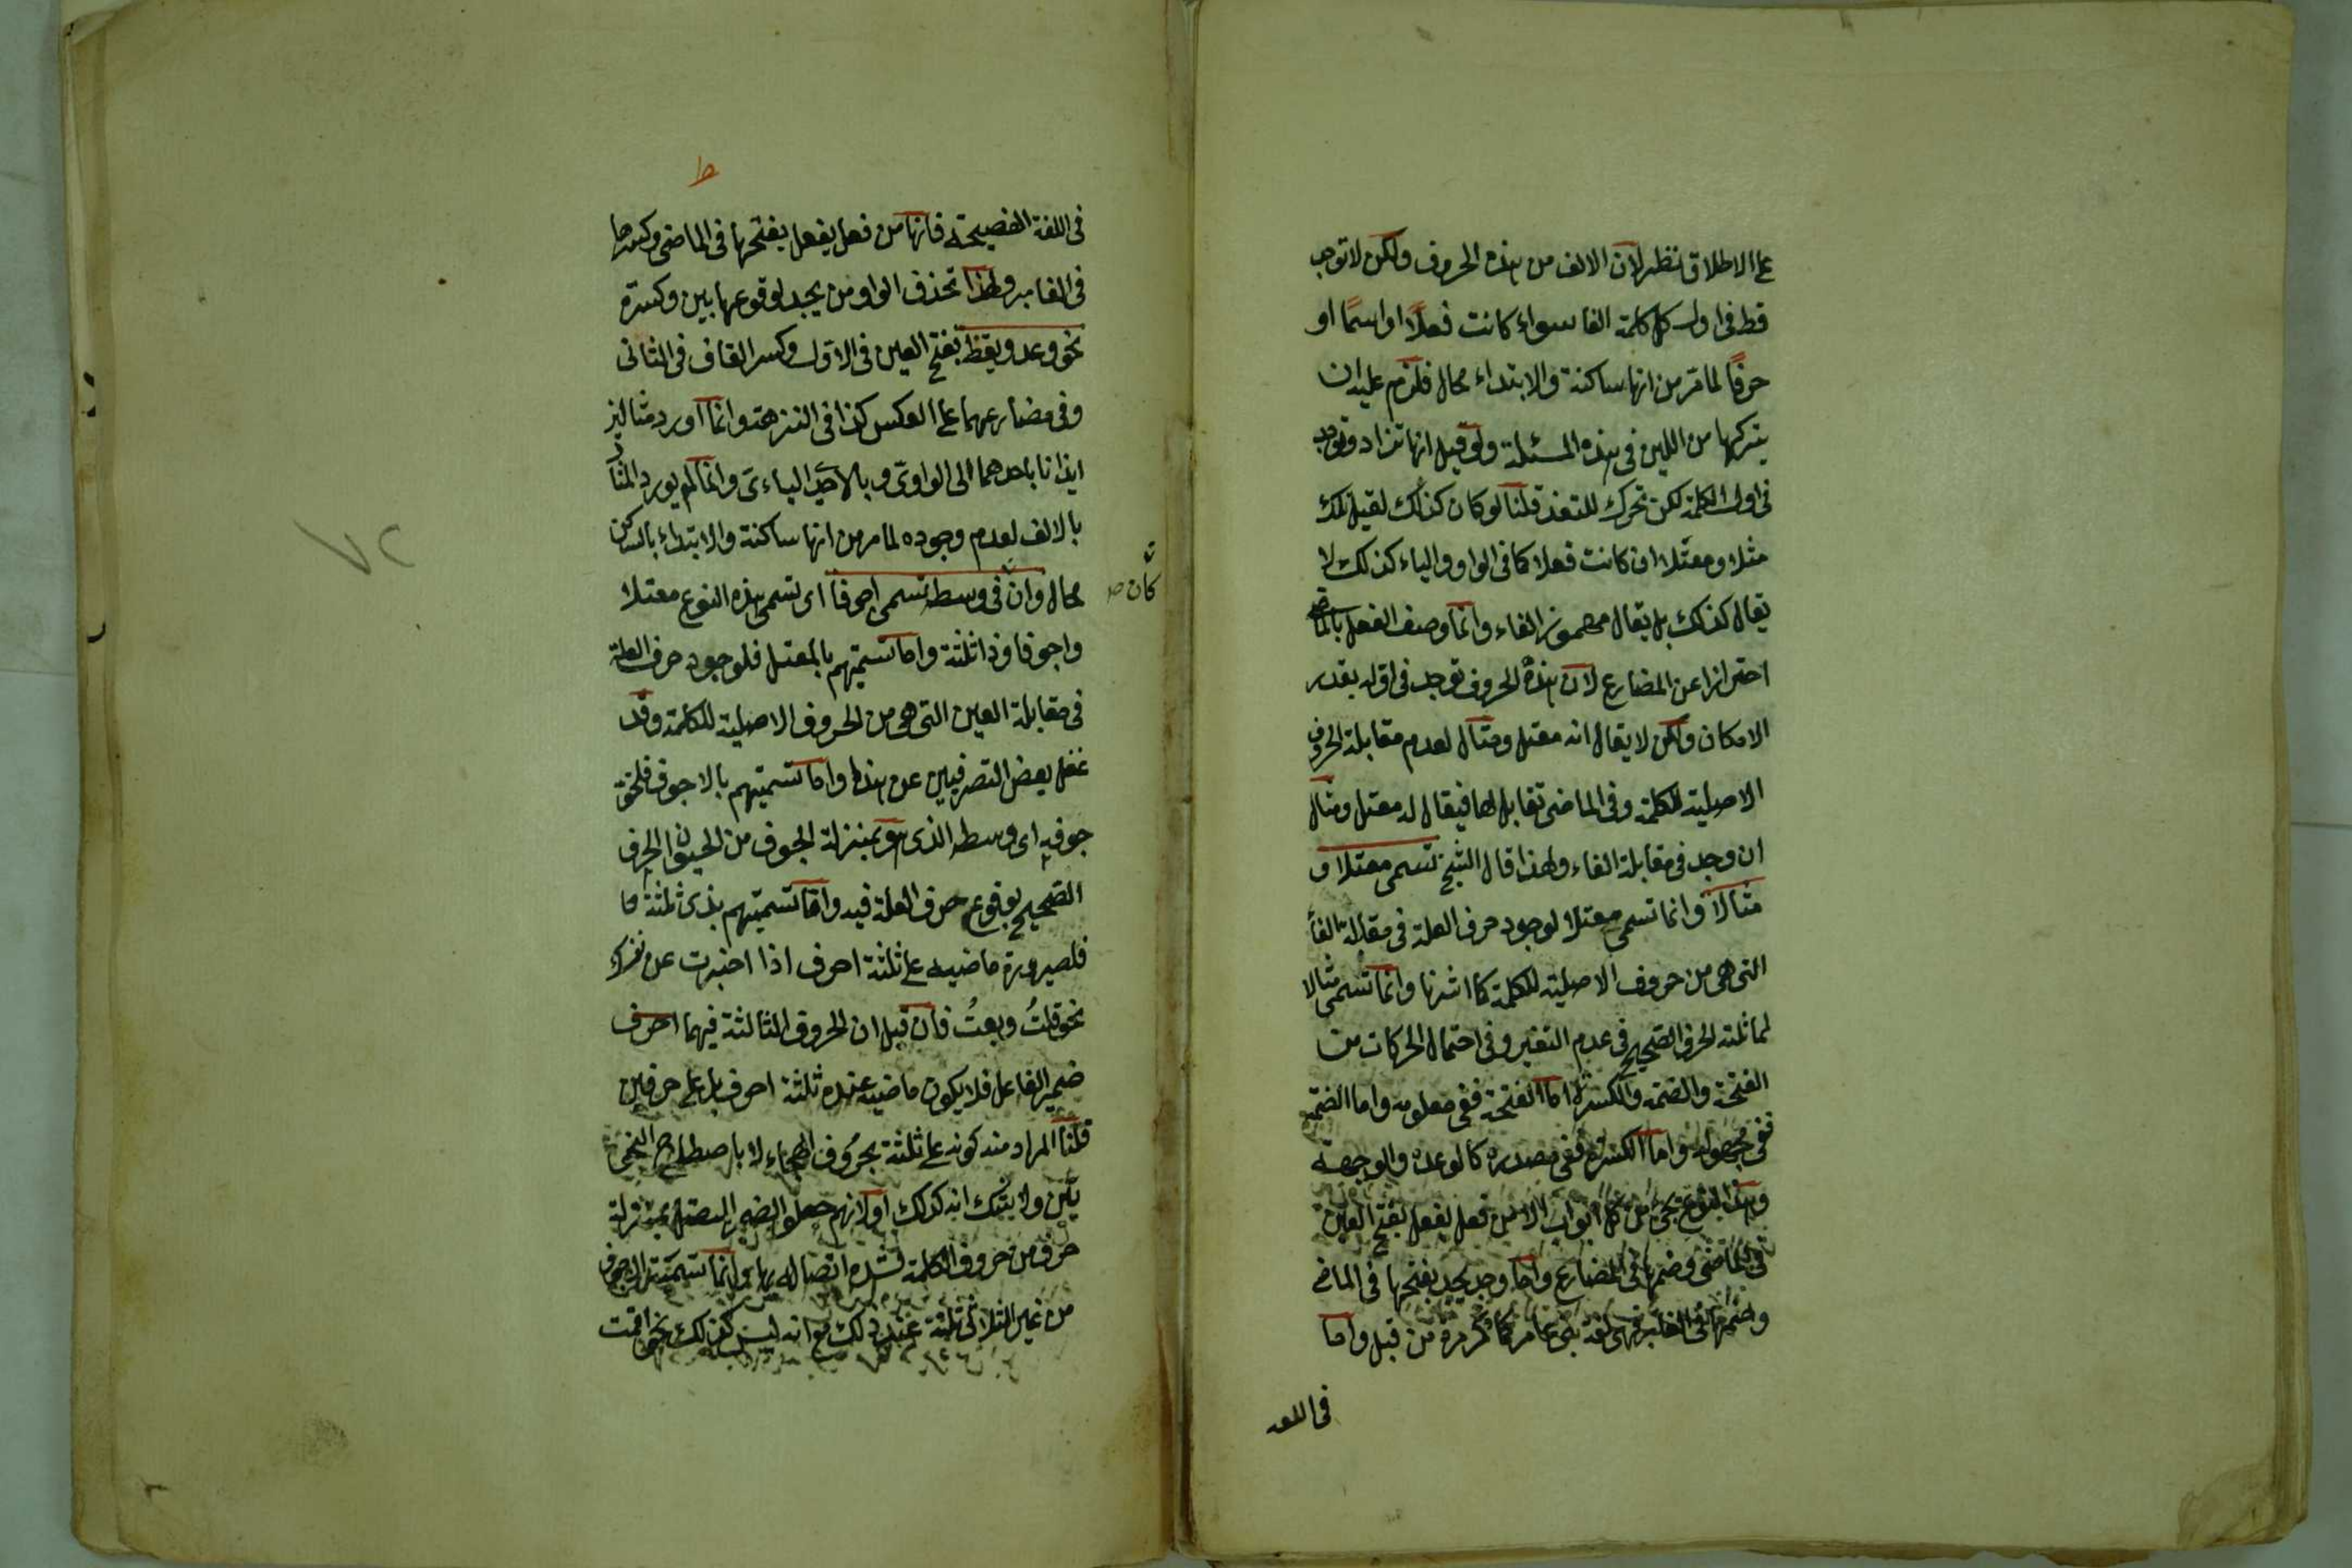 على الاطلاق نظر لان الالف من هذه الحروف ولكن لا توجد
قط فى اول كل كلمة الفا سواء كانت فعلاً او اسمًا او
حرفًا لما مر من انها ساكنة والابتداء محال فلزم عليه ان
يتركها من اللين فى هذه المسئلة ولو قيل انها تزاد وتوجد
فى اول الكلمة لكن تحرك للتعذر قلنا لو كان كذلك لقيل تلك
مثلا ومعتلا ان كانت فعلا كما فى الواو والياء كذلك لا
يقال كذلك بل يقال مهموز الفاء وانما وصف الفعل بالماضى
احترازا عن المضارع لان هذه الحروف توجد فى اوله بقدر
الامكان ولكن لا يقال انه معتل ومثال لعدم مقابلة الحروف
الاصلية للكلمة وفى الماضى تقابل لها فيقال له معتل ومثال
ان وجد فى مقابلة الفاء ولهذا قال الشيخ تسمى معتلا و
مثالاً وانما تسمى معتلا لوجود حرف العلة فى مقابلة الفاء
التى هى من حروف الاصلية للكلمة كما اشرنا وانما تسمى مثالا
لمماثلته الحرف الصحيح فى عدم التغير وفى احتمال الحركات من
الفتحة والضمة والكسرة اما الفتحة ففى معلومه واما الضمة
ففى مجهوله واما الكسرة ففى مصدره كالوعدة والوجهة
وهذا النوع يجئ من كل ابواب الا من فعل يفعل بفتح العين
فى الماضى وضمها فى المضارع واما وجد يجد بفتحها فى الماضى
وضمها فى الغابر فهى لغة بنى عامر كما مر من قبل واما
فى اللغة
فى اللغة الفصيحة فانها من فعل يفعل بفتحها فى الماضى وكسرها
فى الغابر ولهذا تحذف الواو من يجد لوقوعها بين وكسرة
نحو وعد ويقظ بفتح العين فى الاول وكسر القاف فى الثانى
وفى مضارعهما على العكس كذا فى النزهة وانما اورد مثالين
ايذانا باحدهما الى الواوى وبالآخر اليائى وانما لم يورد المثال
بالالف لعدم وجوده لما مر من انها ساكنة والابتداء بالساكن
محال وان فى وسطه تسمى اجوفا اى تسمى هذه النوع معتلا
كان صح
واجوفا وذا ثلثة واما تسميتهم بالمعتل فلوجود حرف العلة
فى مقابلة العين التى هى من الحروف الاصلية للكلمة وقد
غفل بعض التصرفيين عن هذا واما تسميتهم بالاجوف فلخلو
جوفه اى وسطه الذى هو بمنزلة الجوف من الحيوان الحرف
الصحيح بوقوع حرف العلة فيه واما تسميتهم بذى ثلثة
فلصيرورة ماضيه على ثلثة احرف اذا اخبرت عن نفسك
نحو قلتُ وبعتُ فان قيل ان الحروف الثالثة فيهما احرف
ضمير الفاعل فلا يكون ماضيه عنده ثلثة احرف بل على حرفين
قلنا المراد منه كونه على ثلثة بحروف الهجاء لا باصطلاح النحو
يين ولا يشك انه كذلك او لانهم جعلوا الضمير المتصل بمنزلة
حرف من حروف الكلمة لشدة اتصاله بها وانما تسمية الاجوف
من غير الثلاثى ثلثة عند ذلك مع انه ليس كذلك نحو اقمت
٧٢